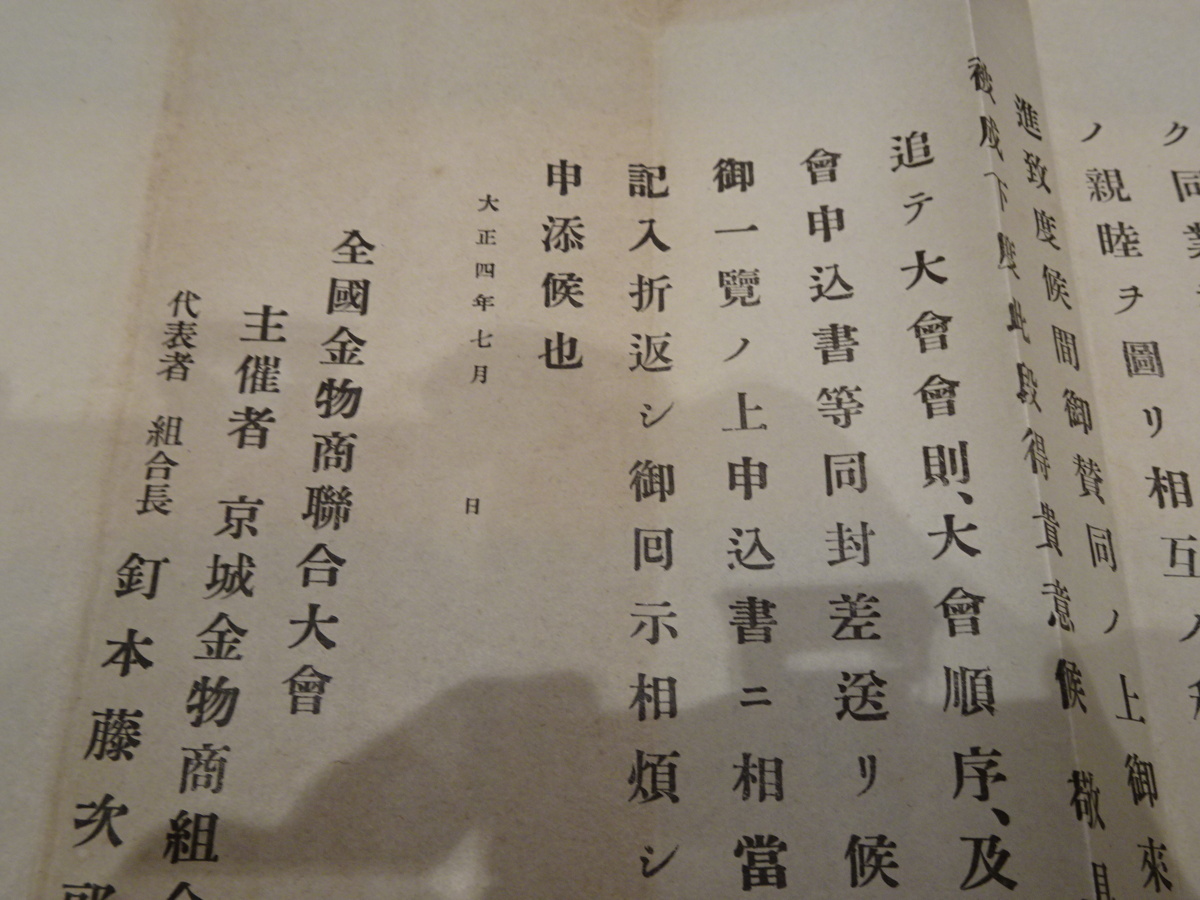 ク同業
ノ親睦ヲ圖リ相互ノ
進致度候間御賛同ノ上御來
被成下度此段得貴意候 敬具
追テ大會會則、大會順序、及
會申込書等同封差送リ候
御一覽ノ上申込書ニ相當
記入折返シ御回示相煩シ
申添候也
大正四年七月 日
全國金物商聯合大會
主催者 京城金物商組合
代表者 組合長 釘本藤次郎